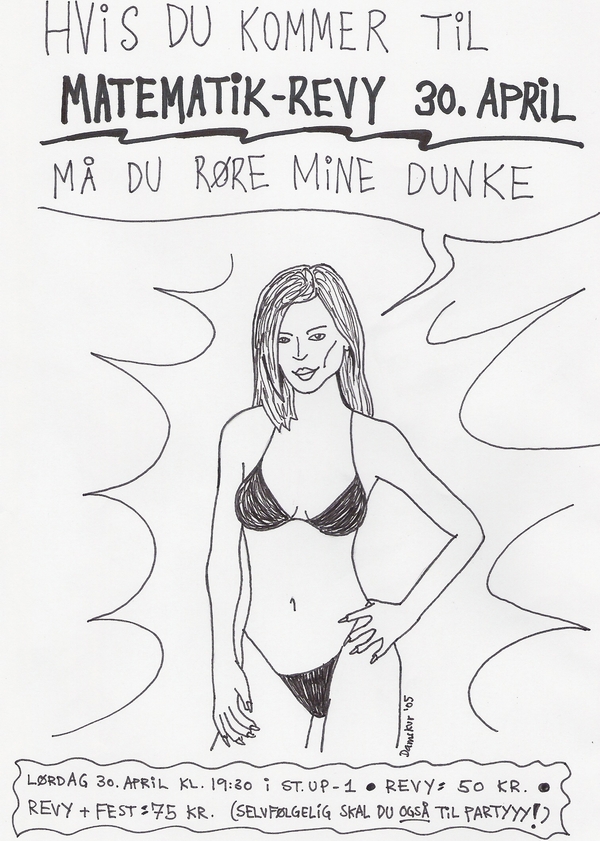 HViS DU KOMMER TiL
MATEMATiK-REVY 30. APRiL
MÅ DU RØRE MiNE DUNKE
Damekur '05
LØRDAG 30. APRiL KL. 19:30 i ST.UP-1 • REVY: 50 KR. •
REVY + FEST: 75 KR. (SELVFØLGELiG SKAL DU OGSÅ TiL PARTYYY!)